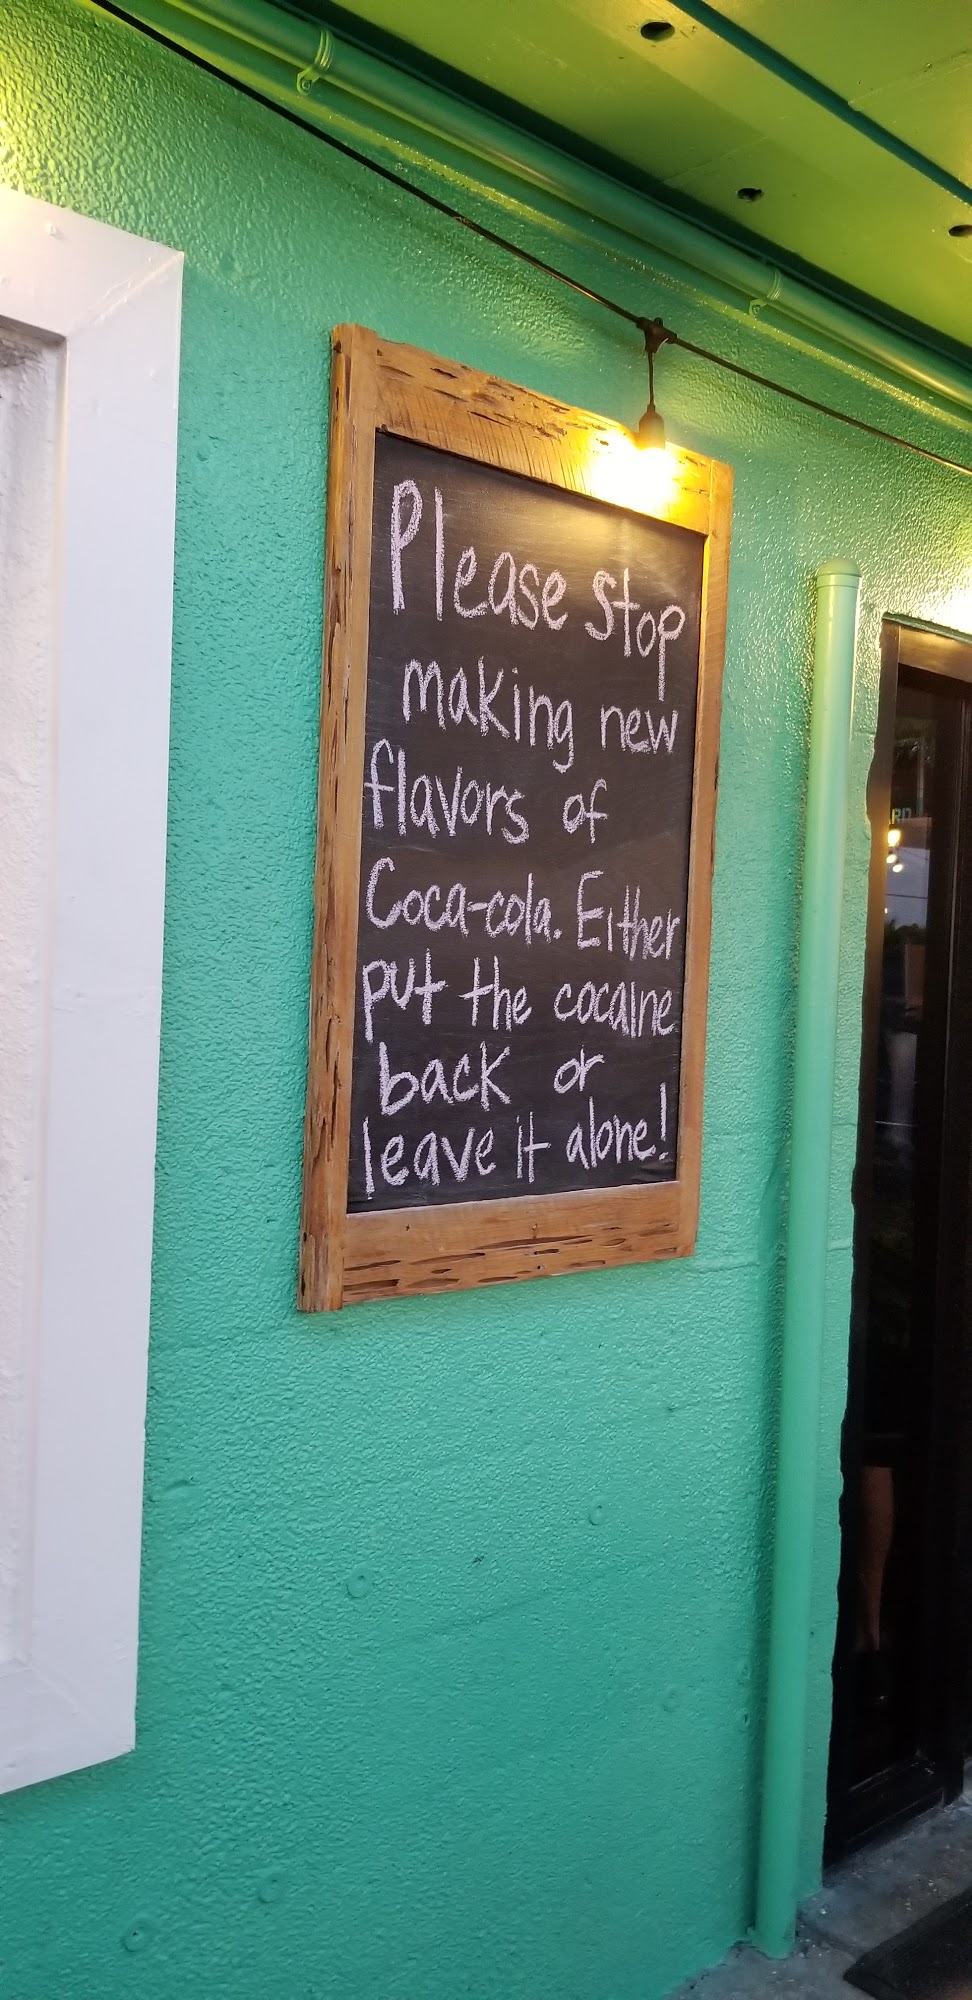 Please stop
making new
flavors of
Coca-cola. Either
put the cocaine
back or
leave it alone!